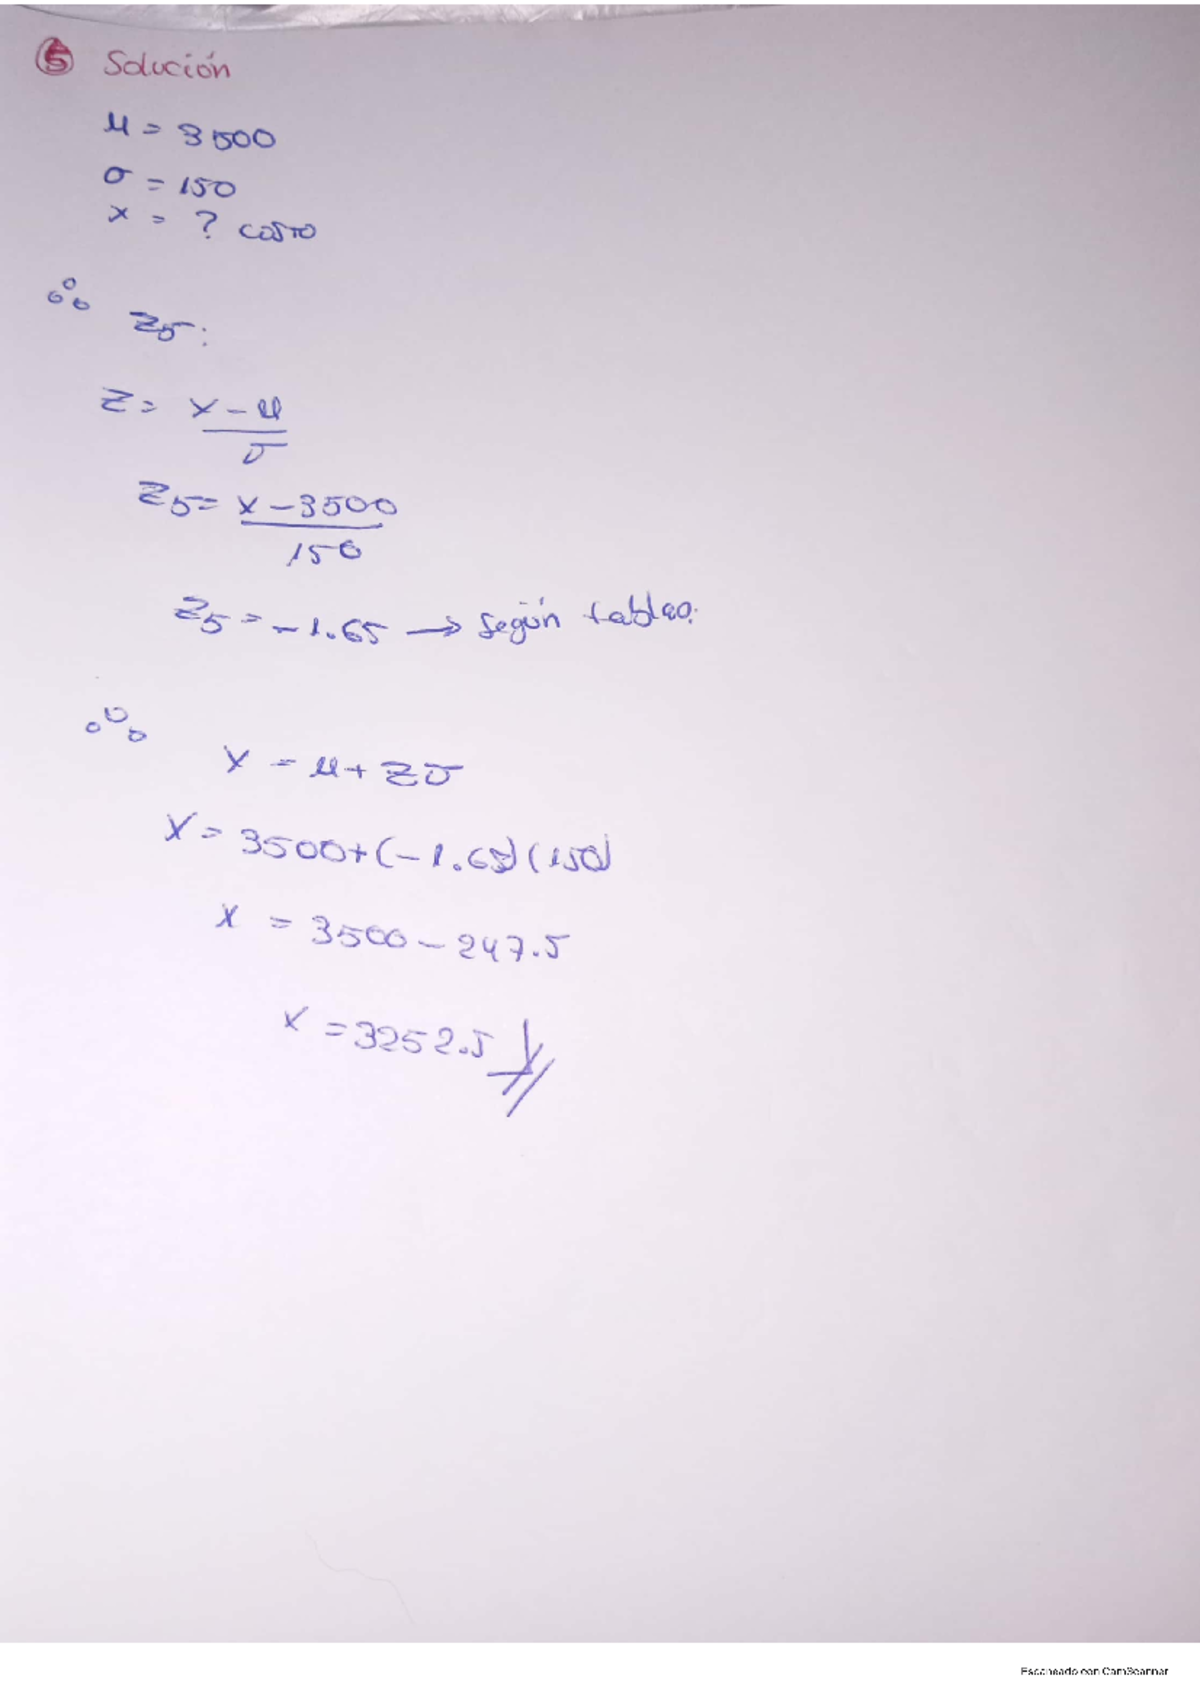 5 Solución
μ = 3500
σ = 150
x = ? costo
∴ Z5:
Z = x - μ
σ
Z5 = x - 3500
150
Z5 = -1.65 → según tablas.
∴
x = μ + Zσ
x = 3500 + (-1.65)(150)
x = 3500 - 247.5
x = 3252.5
Escaneado con CamScanner